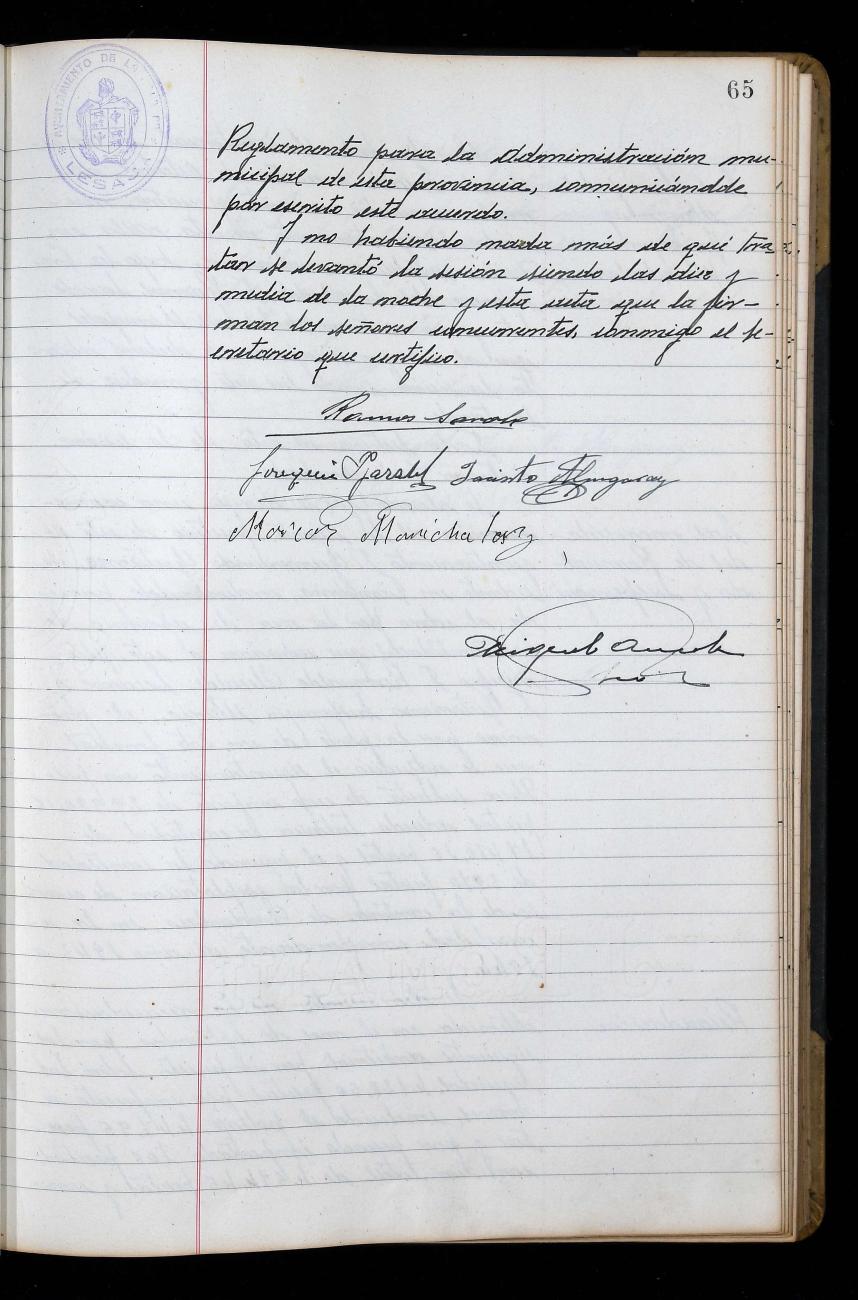 65
AYUNTAMIENTO DE LA
LESACA
Reglamento para la Administración mu-
nicipal de esta provincia, comunicándole
por escrito este acuerdo.
Y no habiendo nada más de qué tra-
tar se levantó la sesión siendo las diez y
media de la noche y esta acta que la fir-
man los señores concurrentes, conmigo el se-
cretario que certifico.
Ramos
Joaquin Jacinto
Marichalar
Miguel